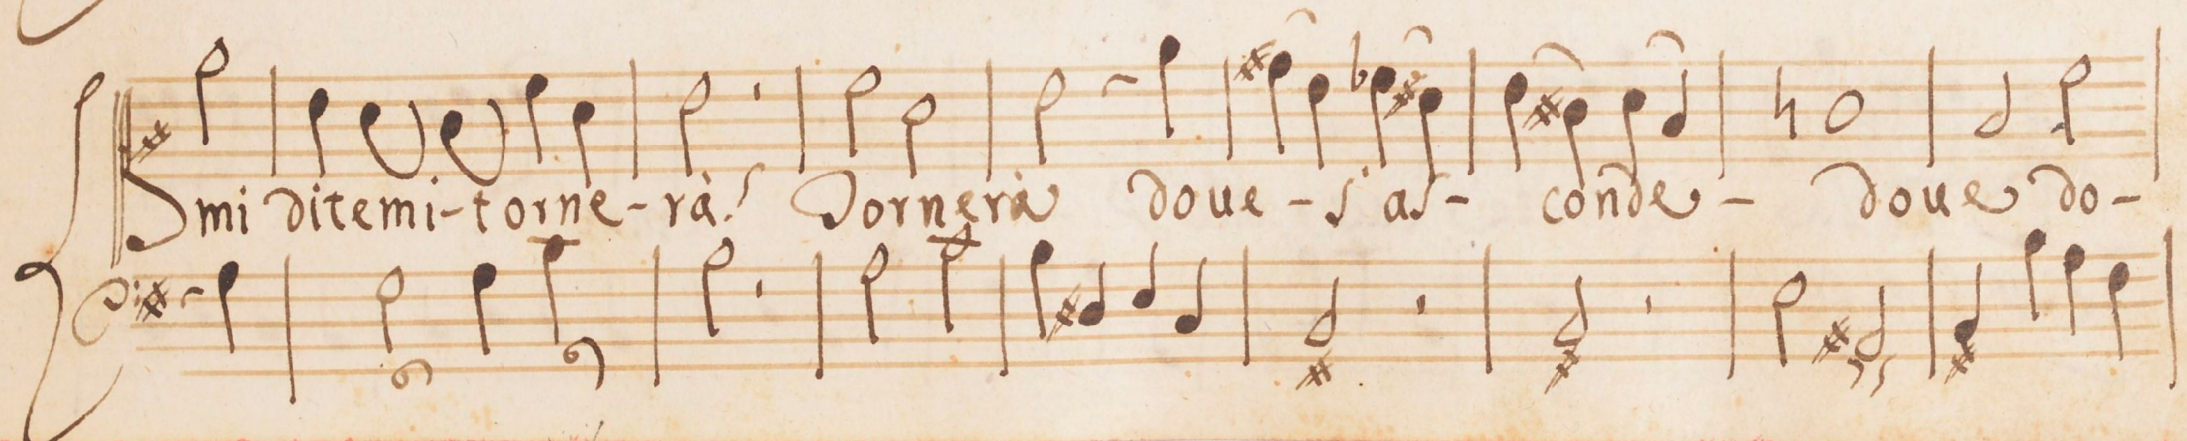 mi ditemi-torne-rà! Tornerà doue-s'as-conde-doue do-